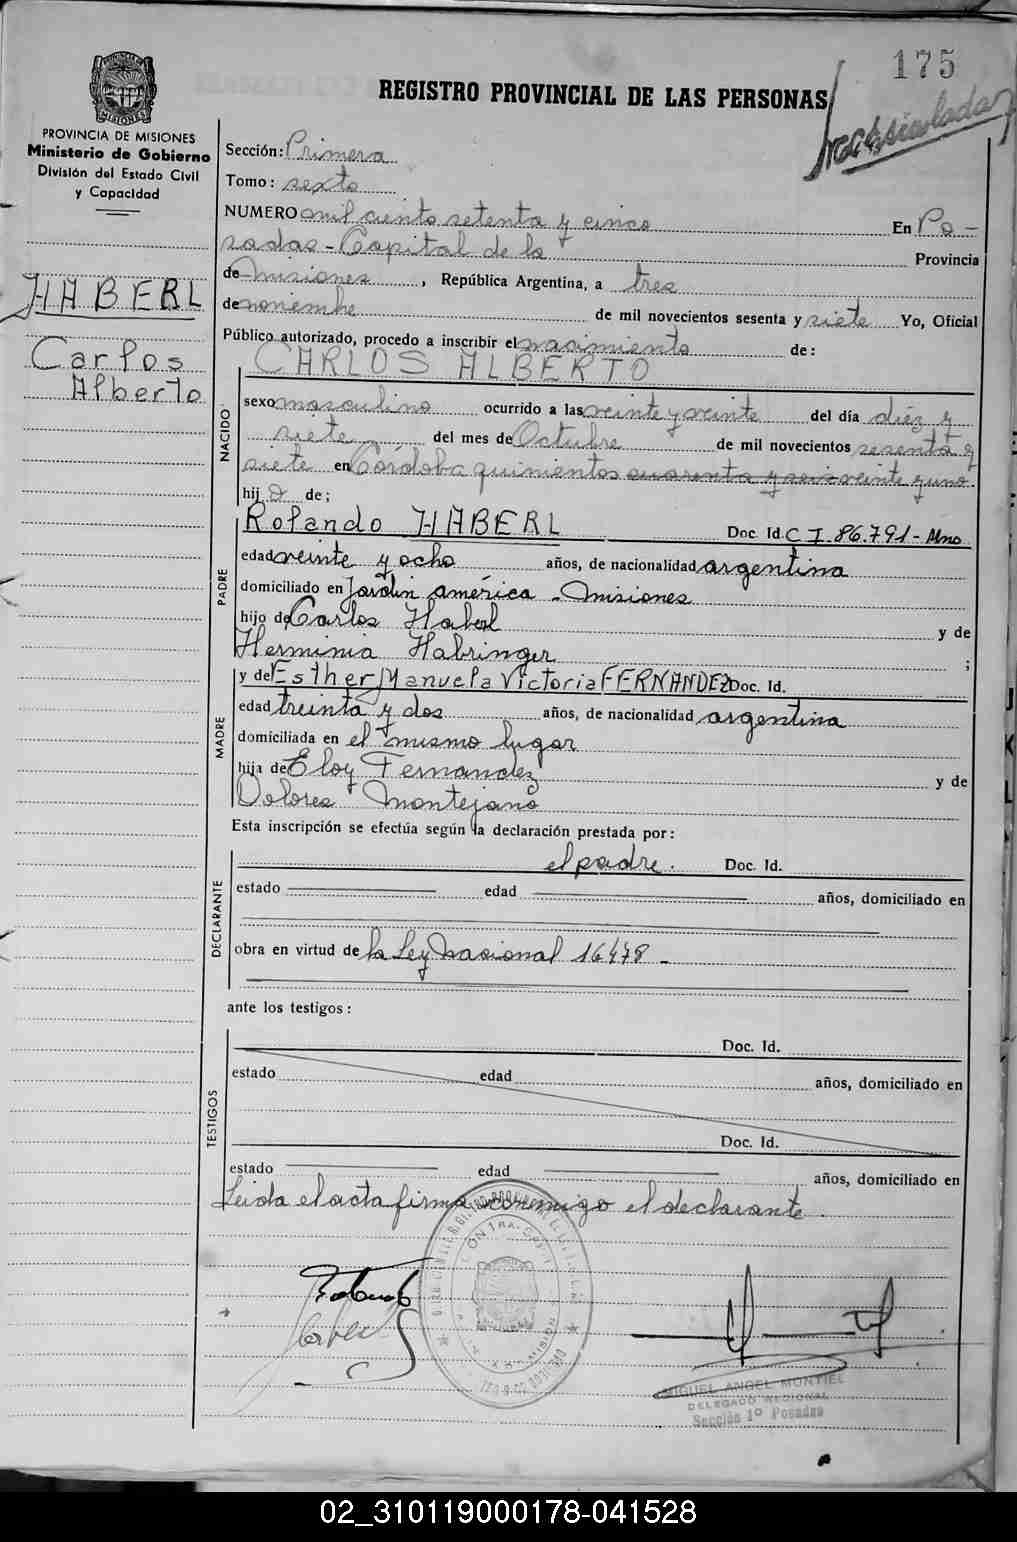 175
REGISTRO PROVINCIAL DE LAS PERSONAS
PROVINCIA DE MISIONES
Ministerio de Gobierno
División del Estado Civil
y Capacidad
HABERL
Carlos
Alberto
Sección: Primera
Tomo: sexto
NUMERO mil ciento setenta y cinco En Po-
sadas - Capital de la Provincia
de Misiones, República Argentina, a tres
de noviembre de mil novecientos sesenta y siete Yo, Oficial
Público autorizado, procedo a inscribir el nacimiento de:
CARLOS ALBERTO
NACIDO
sexo masculino ocurrido a las veinte y veinte del día diez y
siete del mes de Octubre de mil novecientos sesenta y
siete en Córdoba quinientos cuarenta y seis veinte y uno.
hijo de;
PADRE
Rolando HABERL Doc. Id. C I. 86.791 - Mno
edad veinte y ocho años, de nacionalidad argentina
domiciliado en Jardin américa - Misiones
hijo de Carlos Haberl y de
Herminia Habringer ;
MADRE
y de Esther Manuela Victoria FERNANDEZ Doc. Id.
edad treinta y dos años, de nacionalidad argentina
domiciliada en el mismo lugar
hija de Eloy Fernandez y de
Dolores Montejano
Esta inscripción se efectúa según la declaración prestada por:
DECLARANTE
el padre. Doc. Id.
estado edad años, domiciliado en
obra en virtud de la Ley Nacional 16478 -
ante los testigos:
TESTIGOS
Doc. Id.
estado edad años, domiciliado en
Doc. Id.
estado edad años, domiciliado en
Leida el acta firma conmigo el declarante.
MIGUEL ANGEL MONTIEL
DELEGADO REGIONAL
Sección 1º Posadas
02_310119000178-041528